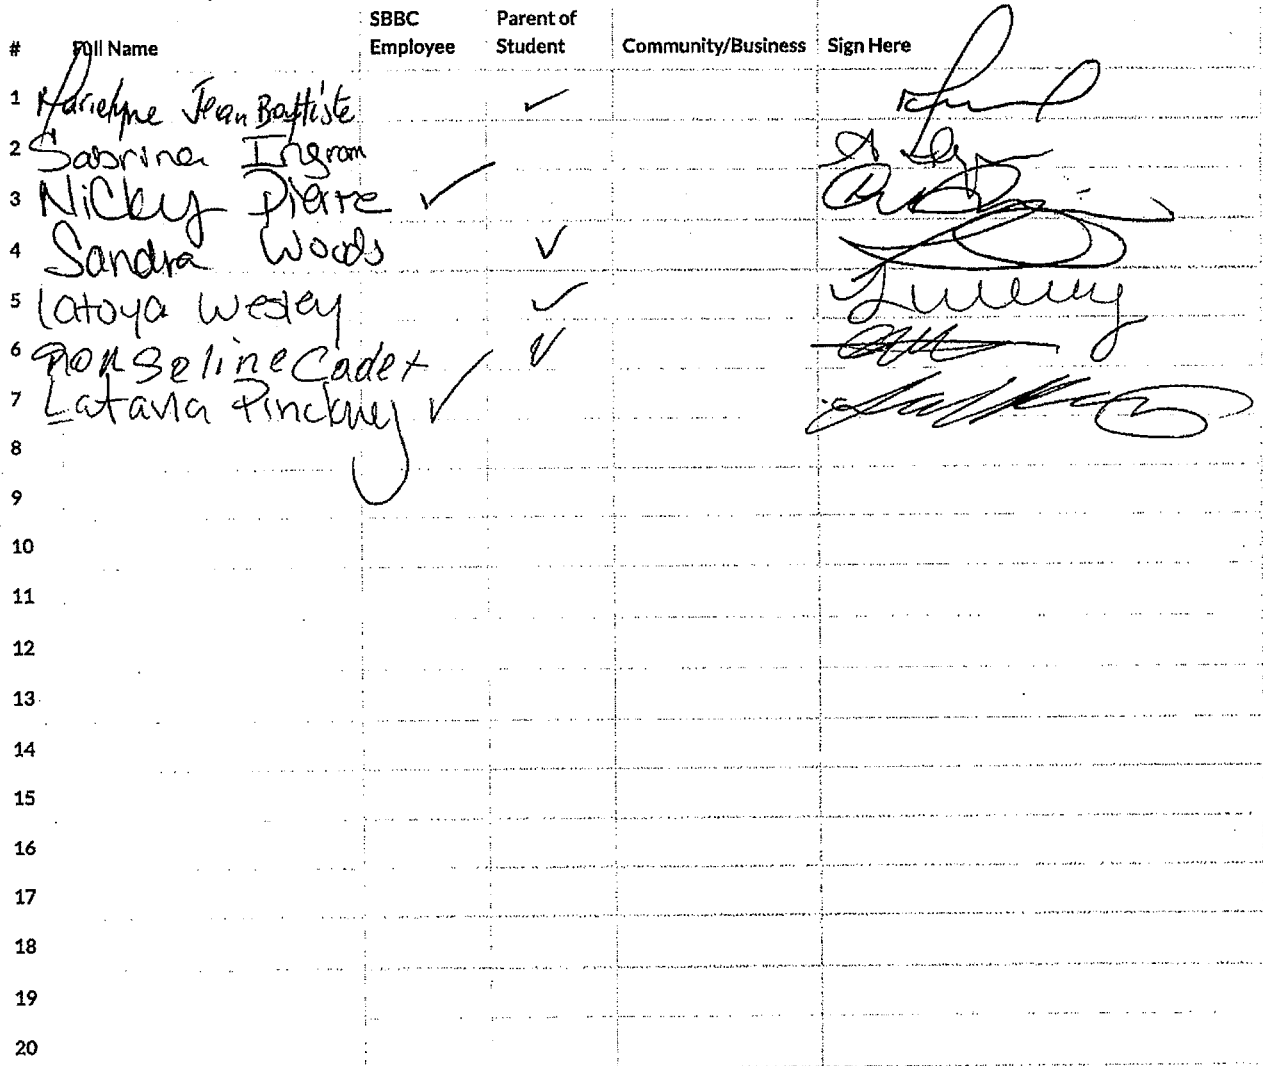 SBBC Parent of
# Full Name Employee Student Community/Business Sign Here
1 Marielyne Jean Baptiste ✓
2 Sabrina Ingram
3 Nicky Pierre ✓
4 Sandra Woods ✓
5 Latoya Wesley ✓
6 Cadet ✓
7 Latavia Pinckney ✓
8
9
10
11
12
13
14
15
16
17
18
19
20